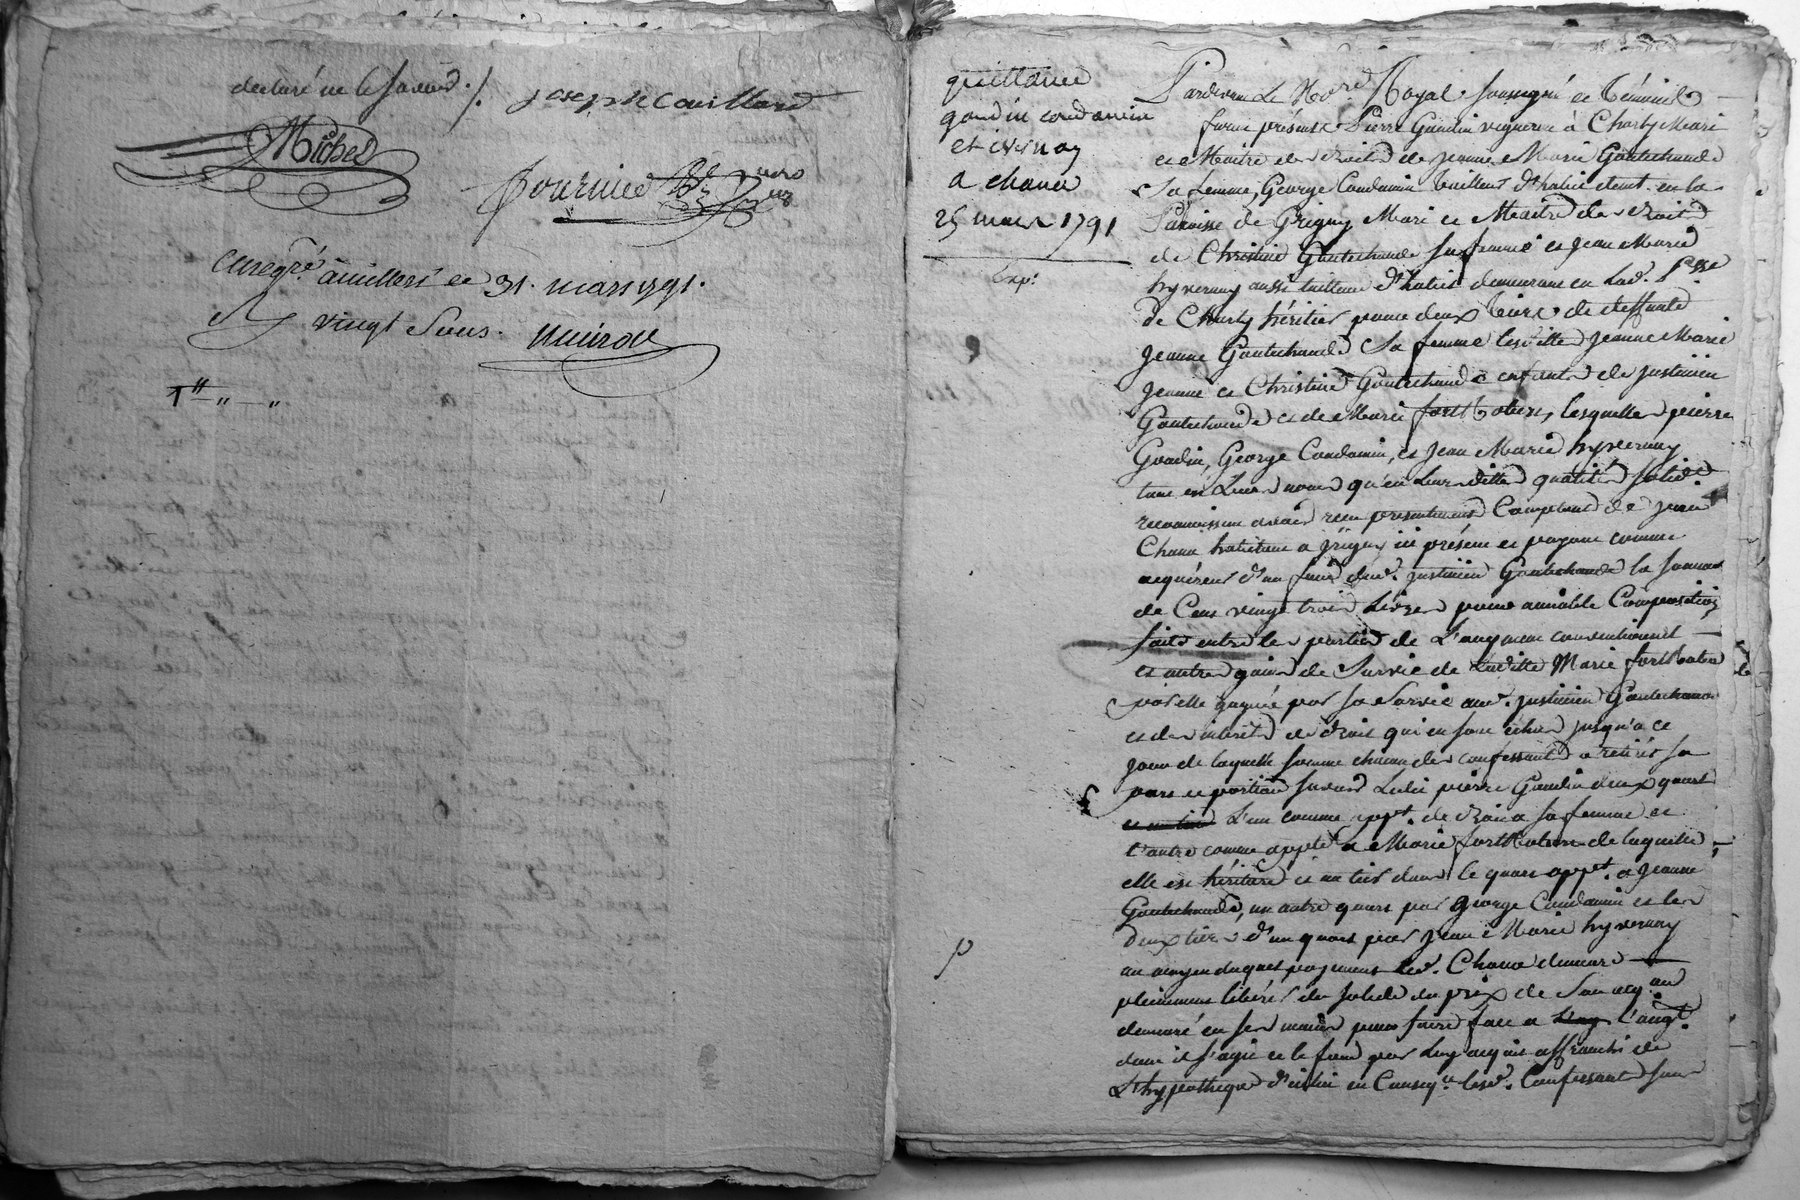 declaré ne le savoir ./. joseph couillard
Michel
fournier
Enregré a millery le 31. mars 1791.
vingt sous.
1" " — "
quittance
gaudin condamin
et ivernay
a chana
25 mars 1791
Exp:
Pardevant Le No.re Royal soussigné et témoins
furent présents Pierre Gaudin vigneron à Charly Mari
et Maitre des droits de jeanne Marie Gautechaude
sa femme, George Condamin tailleur d'habit demt. en la
Paroisse de Grigny Mari et Maitre des droits
de Christine Gautechaude sa femme et Jean Marie
hyvernay aussi tailleur d'habits demeurant en lad. Psse
de Charly héritier pour deux tiers de deffunte
Jeanne Gautechaude sa femme lesdittes jeanne Marie
jeanne et Christine Gautechaude enfants de justinien
Gautechaude et de Marie, lesquelles pierre
Gaudin, George Condamin, et Jean Marie hyvernay
tant en Leurs noms qu'en Leursdittes qualités solid.
reconnoissent avoir reçu présentement Comptant de jean
Chana habitant a Grigny ici présent et payant comme
acquéreur d'un fond dud. justinien Gautechaude la somme
de Cent vingt trois Livres pour amiable Composition
faite entre les parties de L'augment conventionnel
et autres gains de Survie de Laditte Marie
par elle gagnés par sa survie aud. justinien Gautechaude
et des intérêts de droit qui en sont échus jusqu'a ce
jour de laquelle somme chacun des confessants a retiré sa
part et portion savoir Ledit pierre Gaudin deux quarts
L'un comme appt. de droit a sa femme et
l'autre comme appt. a Marie de laquelle
elle est héritière et un tiers dans le quart appt. a jeanne
Gautechaude, un autre quart par George Condamin et les
deux tiers d'un quart par Jean Marie hyvernay
au moyen duquel payement led. Chana demeure
pleinement libéré du solde du prix de son acq.on
demeuré en ses mains pour faire face a L'augt.
dont il s'agit et le fond par Luy acquis affranchi de
L'hypotheque d'icelui en Conseq.ce lesd. Confessants sous